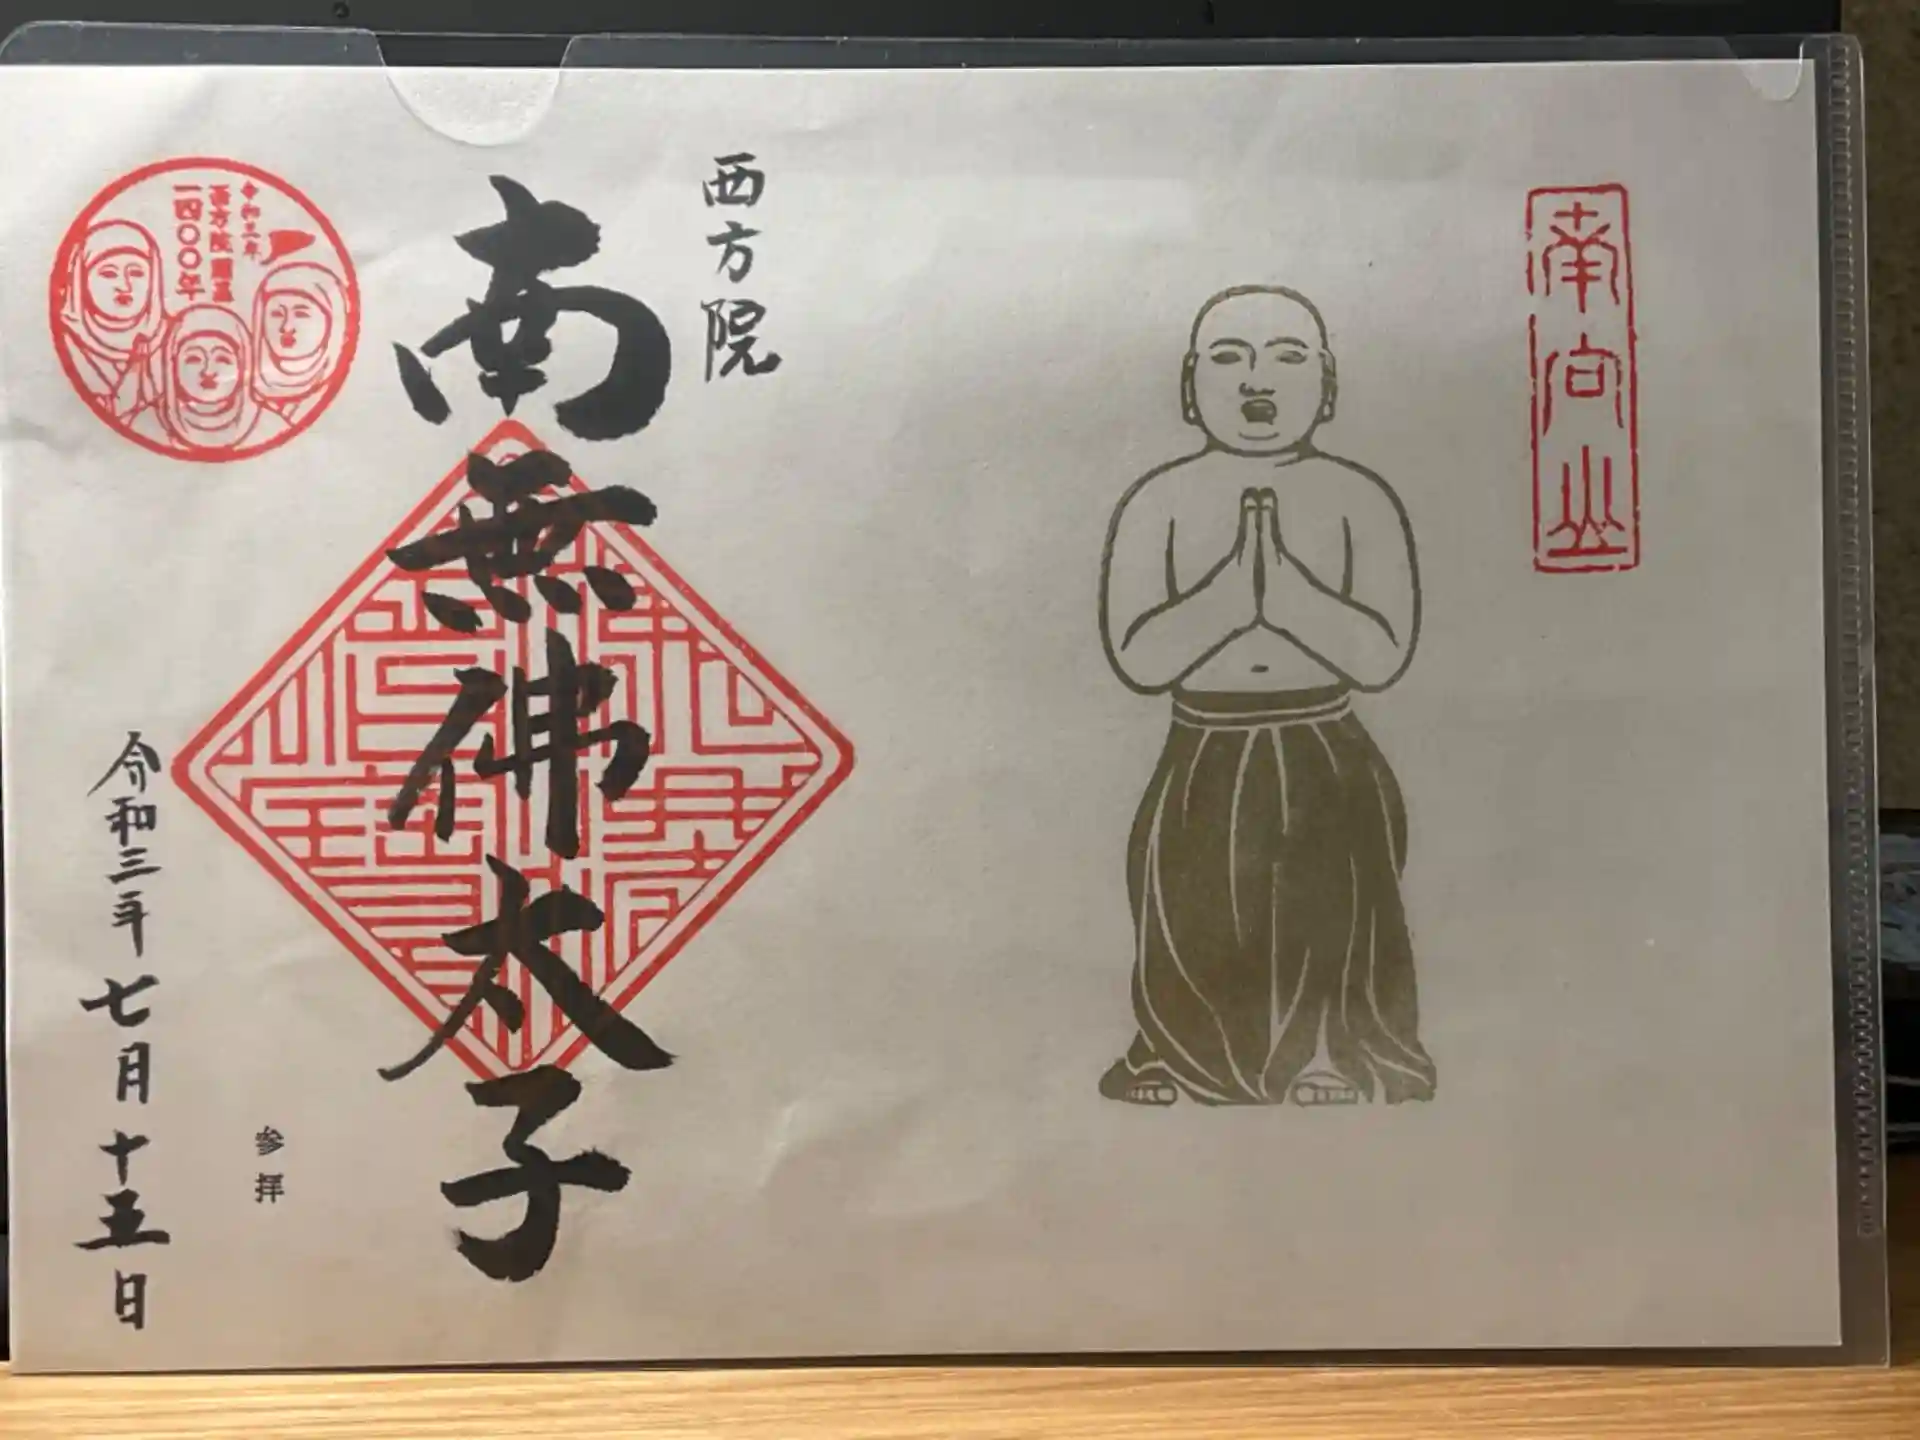 南向山
西方院
南無佛太子
令和三年
西方院開基
一四〇〇年
参拝
令和三年七月十五日